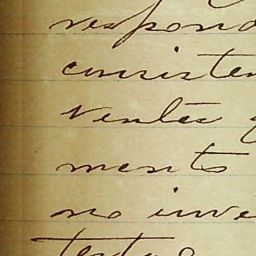 respond
consisten
ventes
ments
no inve